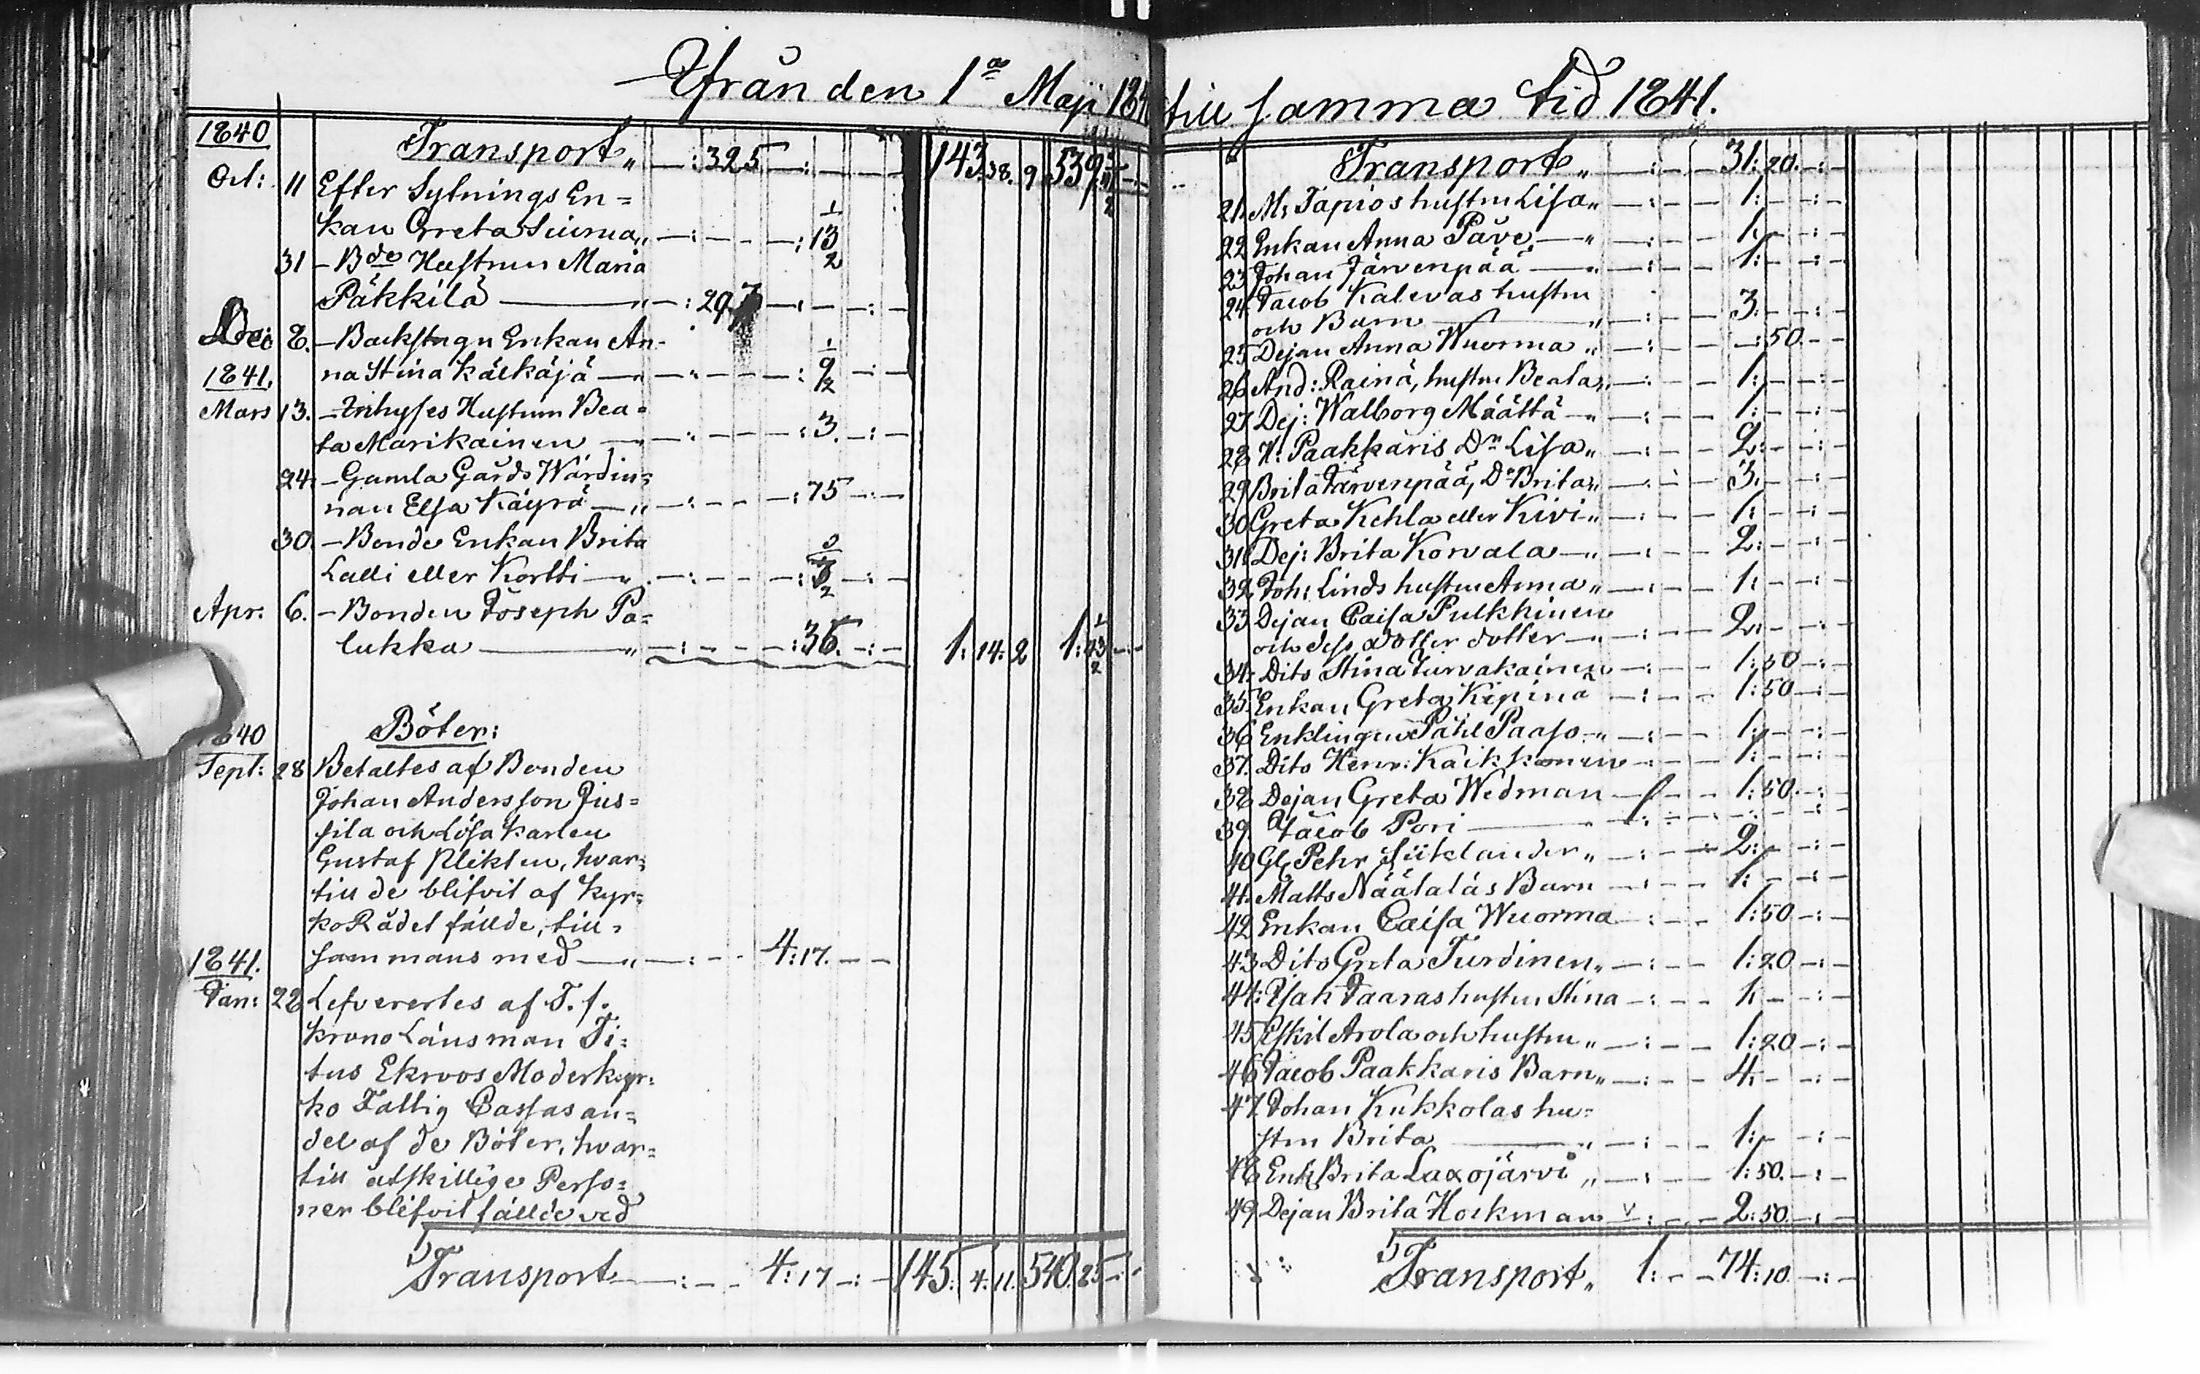 Ifrån den 1ª Maji 184
1840
Transport „ — : 325 — : — — 143. 38. 9. 539.
Oct: 11 Efter Sytnings En=
kan Greta Siurua „ — : — — — : 13 1/2
31 — Bde Hustrun Maria
Päkkilä — „ — : 29 — : — — : —
Dec: 8. — Backstugu Enkan An-
na Stina Kälkäjä — „ — : — — — : 9 1/2 — : —
1841.
Mars 13. — Inhyses Hustrun Bea=
ta Marikainen — „ — : — — — : 3. — : —
24. — Gamla Gårds Wärdin=
nan Elsa Käyrä — „ — : — — — : 75 — : —
30. — Bonde Enkan Brita
Lalli eller Kortti — „ — : — — — : — : —
Apr: 6. — Bonden Joseph Pa=
lukka — „ — : — — — : 36. — : — 1: 14: 2 1: 43 1/2 — : —
Böter:
1840
Sept: 28 Betaltes af Bonden
Johan Andersson Jus=
sila och Lösa Karlen
Gustaf Plikten, hvar=
till de blifvit af Kyr=
koRådet fällde, till=
sammans med — „ — : — — 4: 17. — —
1841.
Jan: 22 Lefvererles af T. f.
Krono Länsman Ti=
tus Ekroos Moderkyr=
ko Fattig Cassas an=
del af de Böter, hvar=
till åtskillige Perso=
ner blifvit fällde vid
Transport — : — — 4: 17 — : — 145. 4. 11. 540. 25 — : —
till samma tid 1841.
Transport „ — : — — 31: 20. — : —
21. M: Tapios hustru Lisa „ — : — — 1: — — : —
22 Enkan Anna Pave — „ — : — — 1: — — : —
23 Johan Järvenpää — „ — : — — 1: — — : —
24. Jacob Kalevas hustru
och Barn — „ — : — — 3. — — : —
25 Dejan Anna Wuorma „ — : — — — : 50. — —
26 And: Rainä, hustru Beata „ — : — — 1: — — : —
27 Dej: Walborg Määttä — „ — : — — 1: — — : —
28 H: Paakkaris Dr Lisa „ — : — — 2: — — : —
29 Brita Järvenpää, Do Brita „ — : — — 3. — — : —
30 Greta Kehla eller Kivi „ — : — — 1: — — : —
31. Dej: Brita Korvala — „ — : — — 2: — — : —
32 Joh: Linds hustru Anna „ — : — — 1: — — : —
33 Dejan Caisa Pulkkinen
och dess dotter dotter — „ — : — — 2: — — : —
34. Dito Stina Turvakainen — : — — 1: 50 — : —
35. Enkan Greta Kipinä — : — — 1: 50 — : —
36 Enklingen Påhl Paaso „ — : — — 1: — — : —
37. Dito Henr: Kaikkonen — : — — 1: — — : —
38 Dejan Greta Widman — 1 — — 1: 50. — : —
39. Jacob Pori — „ — : — — — : —
40 Gl. Pehr Siiklander „ — : — — 2: — — : —
41. Matts Näätaläs Barn — : — — 1: — — : —
42 Enkan Caisa Wuorma — : — — 1: 50 — : —
43 Dito Greta Turdinen „ — : — — 1: 20 — : —
44: Isak Jaaras hustru Stina — : — — 1. — — : —
45 Eskil Arola och hustru „ — : — — 1: 20 — : —
46 Jacob Paakkaris Barn „ — : — — 4. — — : —
47. Johan Kukkolas hu=
stru Brita — „ — : — — 1: — — : —
48 Enk: Brita Laxojärvi „ — : — — 1: 50. — : —
49 Dejan Brita Hockman — : — — 2: 50. — : —
Transport „ 1: — — 74: 10. — : —